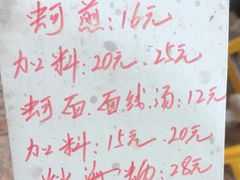 蚵煎：16元
加料：20元 . 25元
蚵面.面线.汤：12元
加料：15元 20元
28元